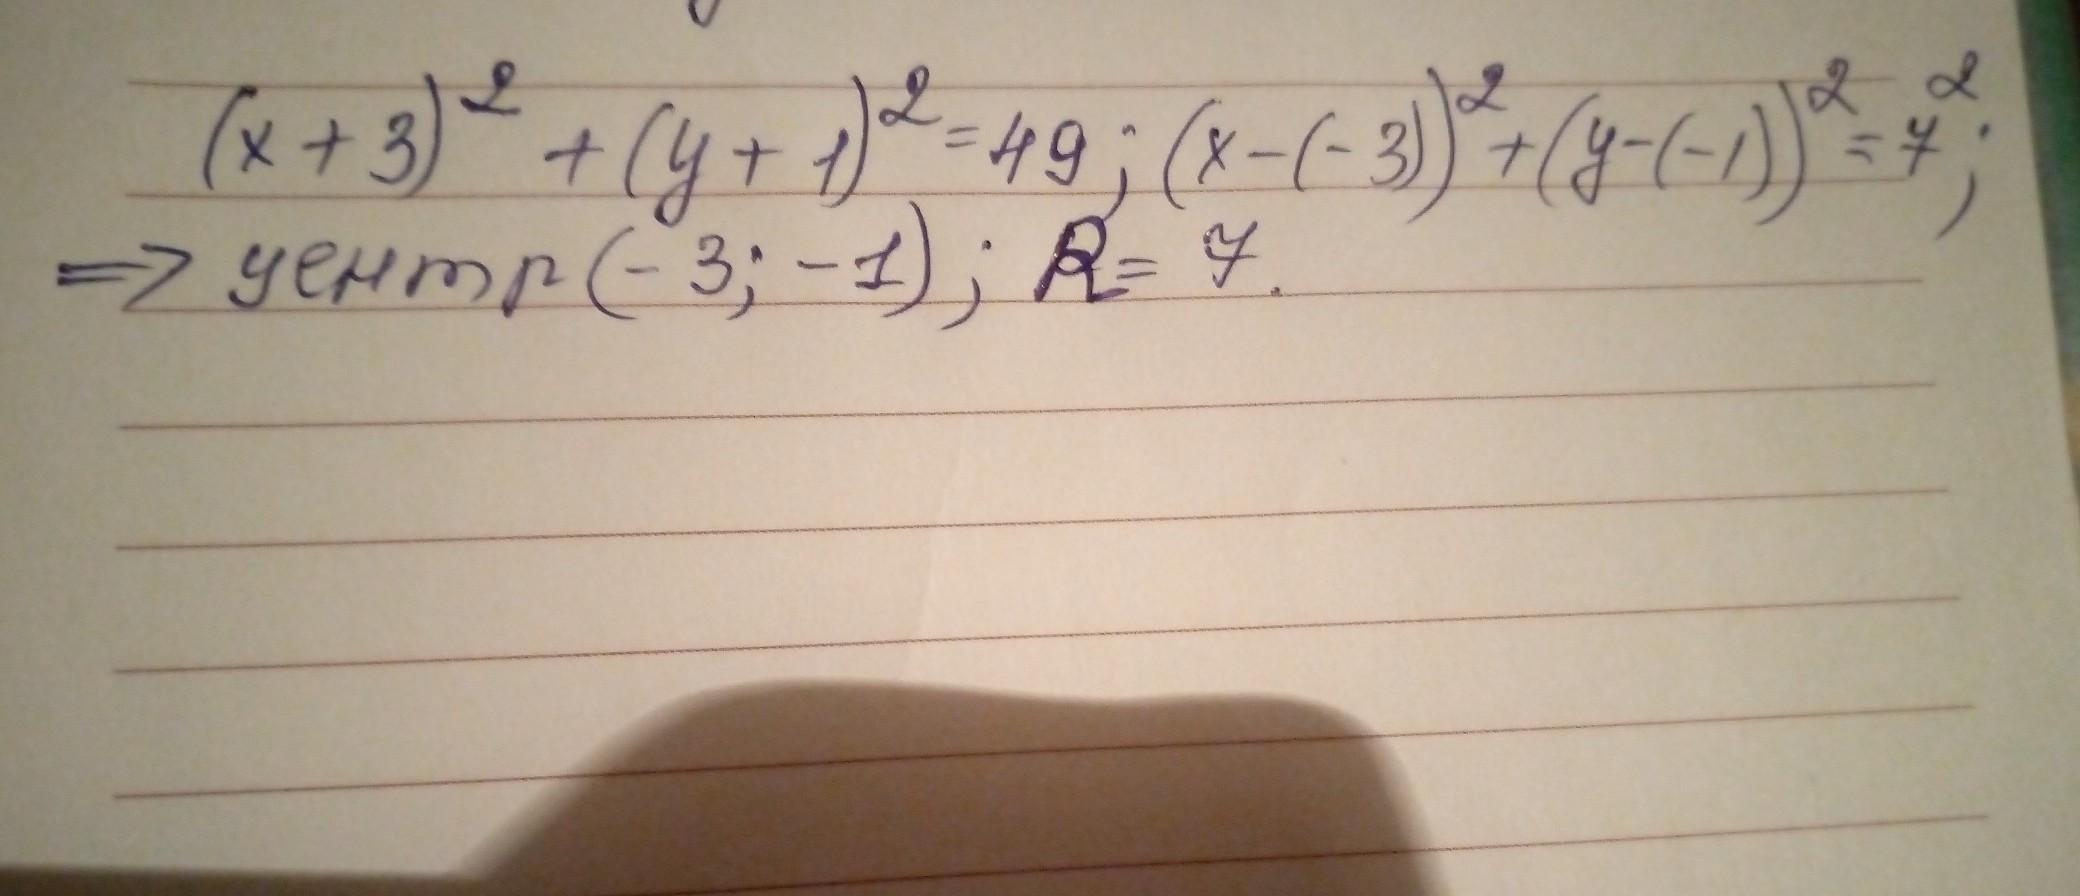 (x+3)² + (y+1)² = 49; (x-(-3))² + (y-(-1))² = 7²;
=> центр (-3; -1); R = 7.